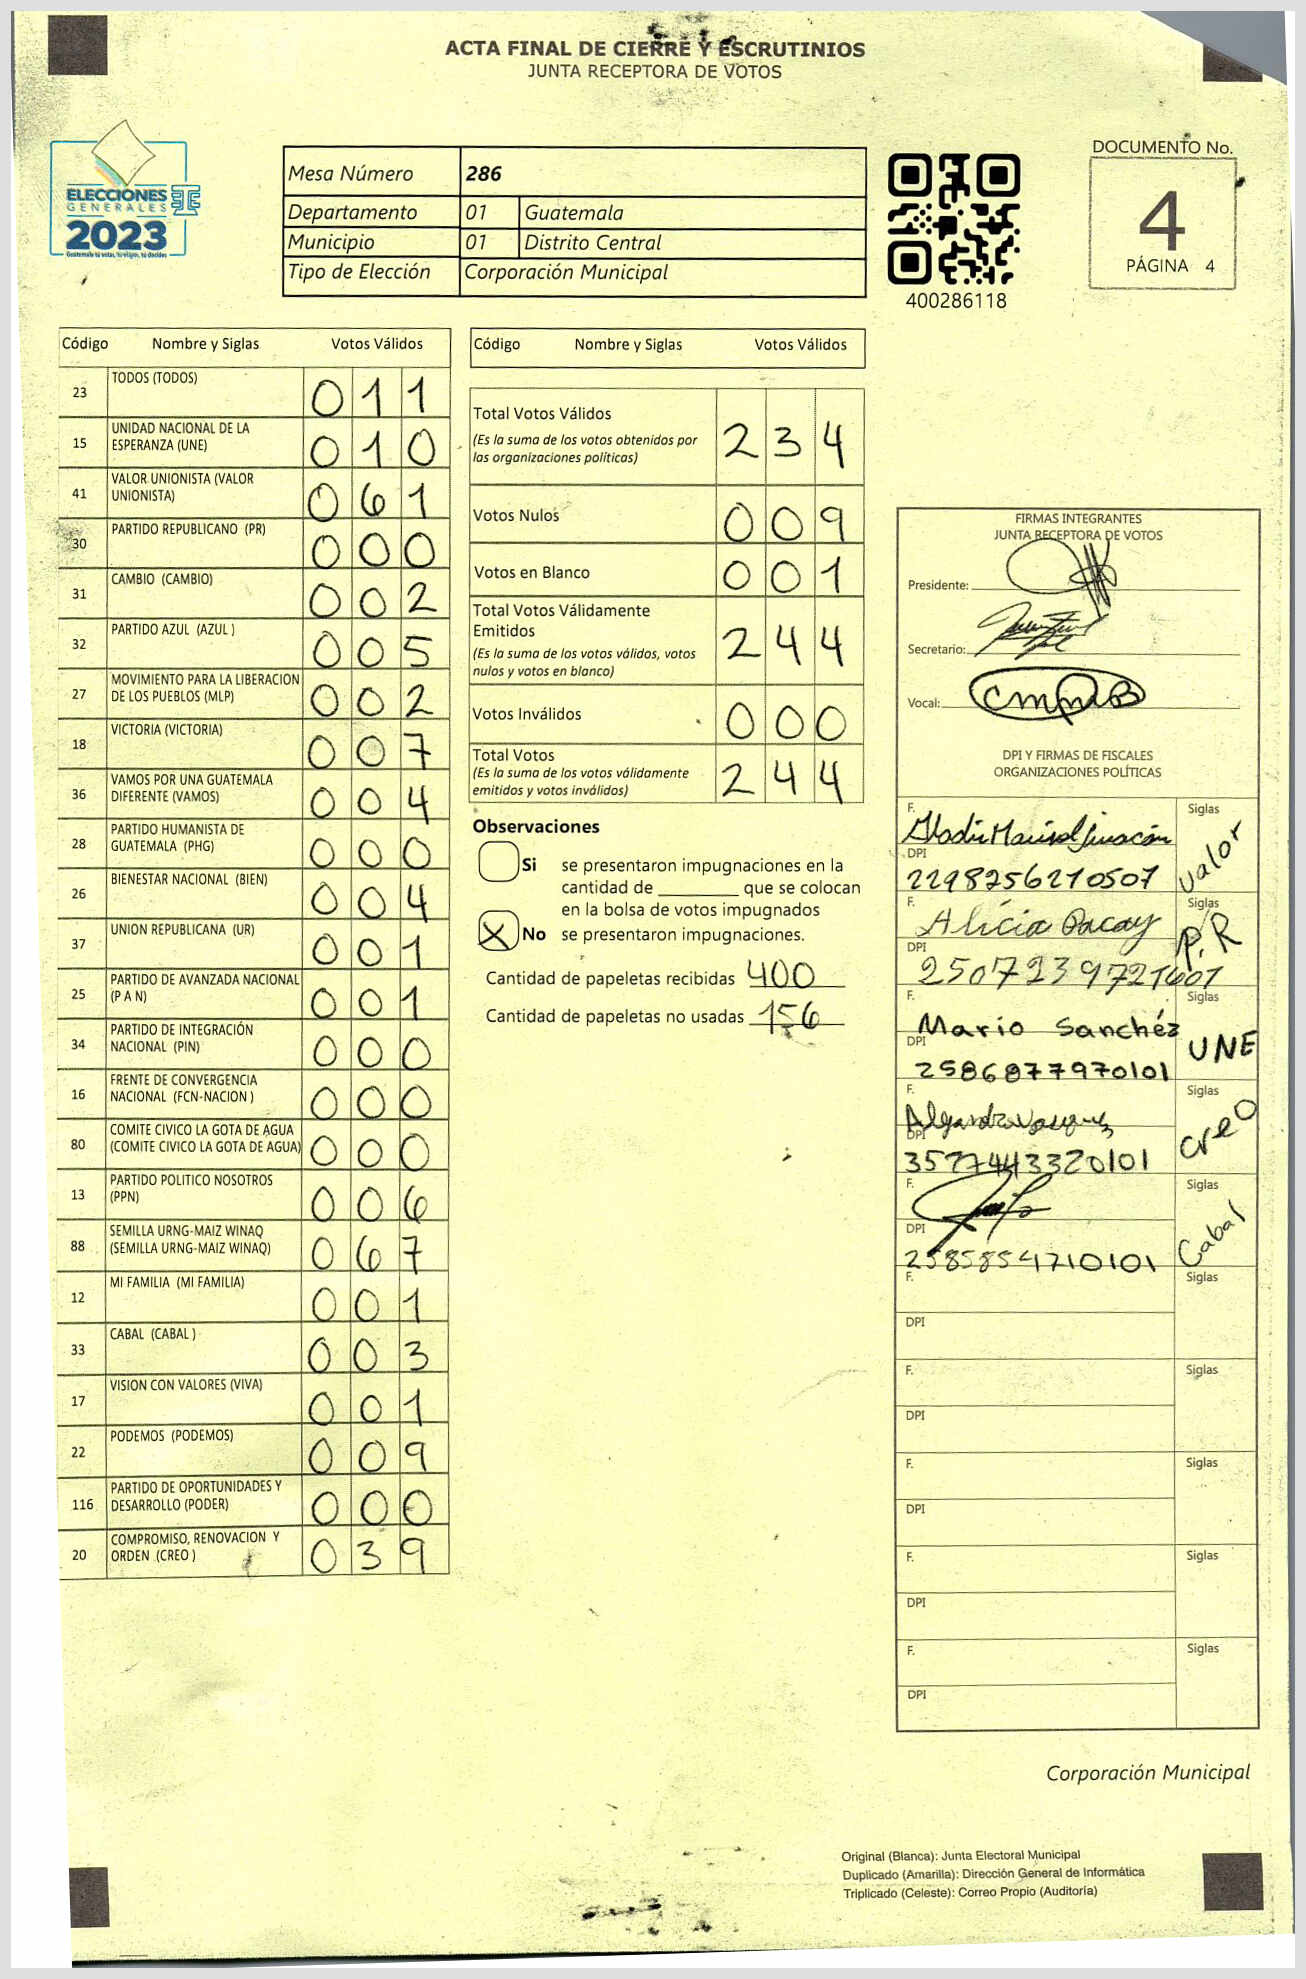 ACTA FINAL DE CIERRE Y ESCRUTINIOS
JUNTA RECEPTORA DE VOTOS
ELECCIONES
GENERALES
2023
Guatemala tú votas, tú eliges, tú decides
Mesa Número 286
Departamento 01 Guatemala
Municipio 01 Distrito Central
Tipo de Elección Corporación Municipal
400286118
DOCUMENTO No.
4
PÁGINA 4
Código Nombre y Siglas Votos Válidos
23 TODOS (TODOS) 0 1 1
15 UNIDAD NACIONAL DE LA
ESPERANZA (UNE) 0 1 0
41 VALOR UNIONISTA (VALOR
UNIONISTA) 0 6 1
30 PARTIDO REPUBLICANO (PR) 0 0 0
31 CAMBIO (CAMBIO) 0 0 2
32 PARTIDO AZUL (AZUL ) 0 0 5
27 MOVIMIENTO PARA LA LIBERACION
DE LOS PUEBLOS (MLP) 0 0 2
18 VICTORIA (VICTORIA) 0 0 7
36 VAMOS POR UNA GUATEMALA
DIFERENTE (VAMOS) 0 0 4
28 PARTIDO HUMANISTA DE
GUATEMALA (PHG) 0 0 0
26 BIENESTAR NACIONAL (BIEN) 0 0 4
37 UNION REPUBLICANA (UR) 0 0 1
25 PARTIDO DE AVANZADA NACIONAL
(P A N) 0 0 1
34 PARTIDO DE INTEGRACIÓN
NACIONAL (PIN) 0 0 0
16 FRENTE DE CONVERGENCIA
NACIONAL (FCN-NACION ) 0 0 0
80 COMITE CIVICO LA GOTA DE AGUA
(COMITE CIVICO LA GOTA DE AGUA) 0 0 0
13 PARTIDO POLITICO NOSOTROS
(PPN) 0 0 6
88 SEMILLA URNG-MAIZ WINAQ
(SEMILLA URNG-MAIZ WINAQ) 0 6 7
12 MI FAMILIA (MI FAMILIA) 0 0 1
33 CABAL (CABAL ) 0 0 3
17 VISION CON VALORES (VIVA) 0 0 1
22 PODEMOS (PODEMOS) 0 0 9
116 PARTIDO DE OPORTUNIDADES Y
DESARROLLO (PODER) 0 0 0
20 COMPROMISO, RENOVACION Y
ORDEN (CREO ) 0 3 9
Código Nombre y Siglas Votos Válidos
Total Votos Válidos
(Es la suma de los votos obtenidos por
las organizaciones políticas) 2 3 4
Votos Nulos 0 0 9
Votos en Blanco 0 0 1
Total Votos Válidamente
Emitidos
(Es la suma de los votos válidos, votos
nulos y votos en blanco) 2 4 4
Votos Inválidos 0 0 0
Total Votos
(Es la suma de los votos válidamente
emitidos y votos inválidos) 2 4 4
Observaciones
Si se presentaron impugnaciones en la
cantidad de ________ que se colocan
en la bolsa de votos impugnados
X No se presentaron impugnaciones.
Cantidad de papeletas recibidas 400
Cantidad de papeletas no usadas 156
FIRMAS INTEGRANTES
JUNTA RECEPTORA DE VOTOS
Presidente:
Secretario:
Vocal:
DPI Y FIRMAS DE FISCALES
ORGANIZACIONES POLÍTICAS
F. Siglas
Valor
DPI
2298256210507
F. Alicia Pacay Siglas
P.R
DPI
F. Siglas
Mario Sanchéz UNE
DPI
2586877970101
F. Siglas
Creo
DPI
3527443320101
F. Siglas
Cabal
DPI
2585854710101
F. Siglas
DPI
F. Siglas
DPI
F. Siglas
DPI
F. Siglas
DPI
F. Siglas
DPI
Corporación Municipal
Original (Blanca): Junta Electoral Municipal
Duplicado (Amarilla): Dirección General de Informática
Triplicado (Celeste): Correo Propio (Auditoría)